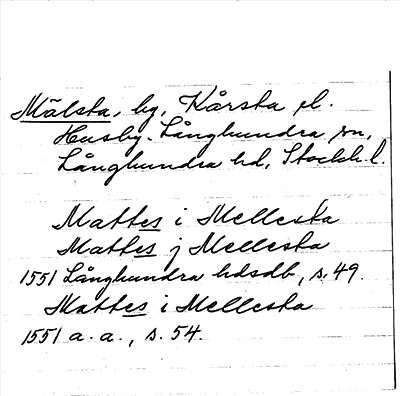 Mälsta, by, Kårsta el.
Husby-Långhundra sn,
Långhundra hd, Stockh. l.
Mattes i Mellesta
Mattes j Mellesta
1551 Långhundra hdsdb, s. 49.
Mattes i Mellesta
1551 a. a., s. 54.